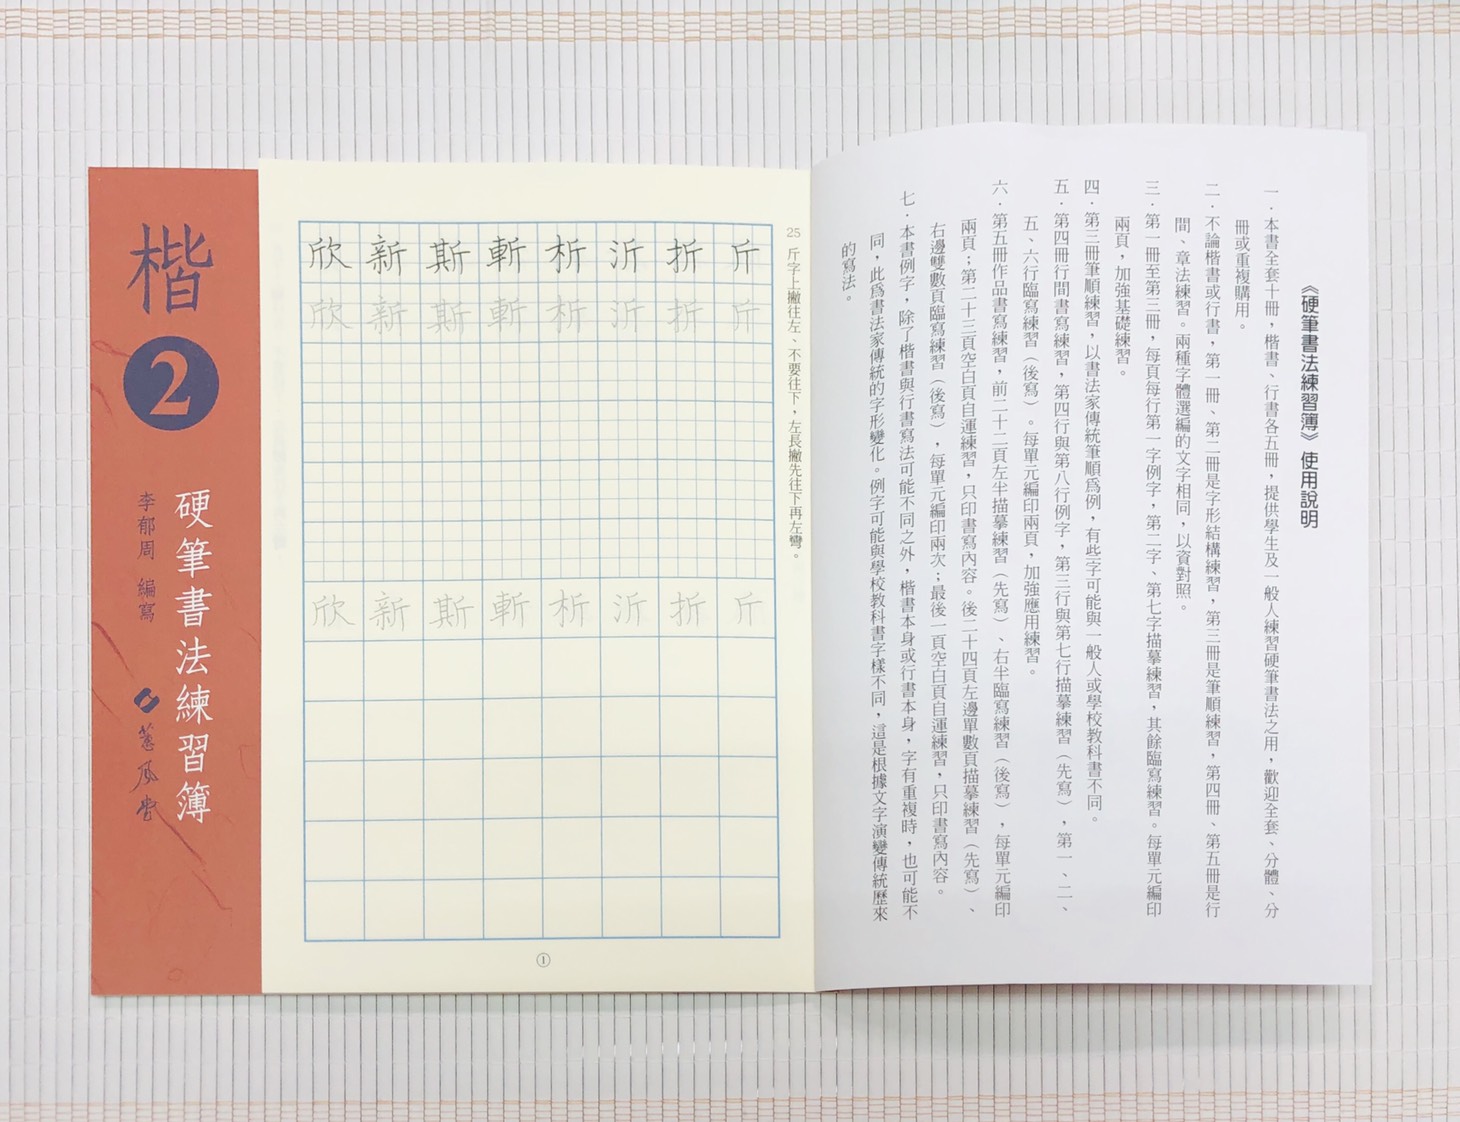 《硬筆書法練習簿》使用說明
一．本書全套十冊，楷書、行書各五冊，提供學生及一般人練習硬筆書法之用，歡迎全套、分體、分
冊或重複購用。
二．不論楷書或行書，第一冊、第二冊是字形結構練習，第三冊是筆順練習，第四冊、第五冊是行
間、章法練習。兩種字體選編的文字相同，以資對照。
三．第一冊至第三冊，每頁每行第一字例字，第二字、第七字描摹練習，其餘臨寫練習。每單元編印
兩頁，加強基礎練習。
四．第三冊筆順練習，以書法家傳統筆順爲例，有些字可能與一般人或學校教科書不同。
五．第四冊行間書寫練習，第四行與第八行例字，第三行與第七行描摹練習（先寫），第一、二、
五、六行臨寫練習（後寫）。每單元編印兩頁，加強應用練習。
六．第五冊作品書寫練習，前二十二頁左半描摹練習（先寫）、右半臨寫練習（後寫），每單元編印
兩頁；第二十三頁空白頁自運練習，只印書寫內容。後二十四頁左邊單數頁描摹練習（先寫）、
右邊雙數頁臨寫練習（後寫），每單元編印兩次；最後一頁空白頁自運練習，只印書寫內容。
七．本書例字，除了楷書與行書寫法可能不同之外，楷書本身或行書本身，字有重複時，也可能不
同，此爲書法家傳統的字形變化。例字可能與學校教科書字樣不同，這是根據文字演變傳統歷來
的寫法。
25 斤字上撇往左、不要往下，左長撇先往下再左彎。
斤斤斤
折折折
沂沂沂
析析析
斬斬斬
斯斯斯
新新新
欣欣欣
①
楷
2
硬筆書法練習簿
李郁周 編寫
蕙風堂